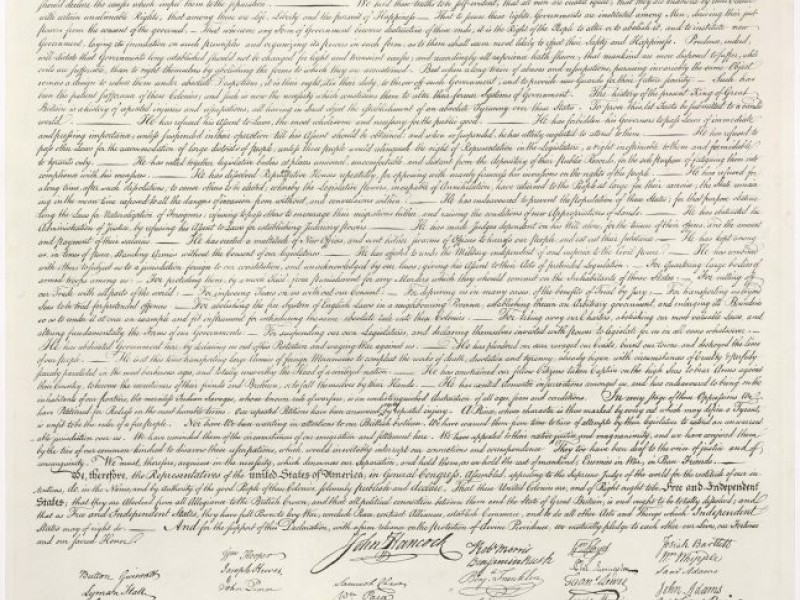 declare the causes which impel them to the separation. — We hold these truths to be self-evident, that all men are created equal, that they are endowed by their Creator
with certain unalienable Rights, that among these are Life, Liberty and the pursuit of Happiness. — That to secure these rights, Governments are instituted among Men, deriving their just
powers from the consent of the governed, — That whenever any Form of Government becomes destructive of these ends, it is the Right of the People to alter or to abolish it, and to institute new
Government, laying its foundation on such principles and organizing its powers in such form, as to them shall seem most likely to effect their Safety and Happiness. Prudence, indeed,
will dictate that Governments long established should not be changed for light and transient causes; and accordingly all experience hath shewn, that mankind are more disposed to suffer, while
evils are sufferable, than to right themselves by abolishing the forms to which they are accustomed. But when a long train of abuses and usurpations, pursuing invariably the same Object
evinces a design to reduce them under absolute Despotism, it is their right, it is their duty, to throw off such Government, and to provide new Guards for their future security. — Such has
been the patient sufferance of these Colonies; and such is now the necessity which constrains them to alter their former Systems of Government. The history of the present King of Great
Britain is a history of repeated injuries and usurpations, all having in direct object the establishment of an absolute Tyranny over these States. To prove this, let Facts be submitted to a candid
world. — He has refused his Assent to Laws, the most wholesome and necessary for the public good. — He has forbidden his Governors to pass Laws of immediate
and pressing importance, unless suspended in their operation till his Assent should be obtained; and when so suspended, he has utterly neglected to attend to them. — He has refused to
pass other Laws for the accommodation of large districts of people, unless those people would relinquish the right of Representation in the Legislature, a right inestimable to them and formidable
to tyrants only. — He has called together legislative bodies at places unusual, uncomfortable, and distant from the depository of their public Records, for the sole purpose of fatiguing them into
compliance with his measures. — He has dissolved Representative Houses repeatedly, for opposing with manly firmness his invasions on the rights of the people. — He has refused for
a long time, after such dissolutions, to cause others to be elected; whereby the Legislative powers, incapable of Annihilation, have returned to the People at large for their exercise; the State remain-
ing in the mean time exposed to all the dangers of invasion from without, and convulsions within. — He has endeavoured to prevent the Population of these States; for that purpose obstruc-
ting the Laws for Naturalization of Foreigners; refusing to pass others to encourage their migrations hither, and raising the conditions of new Appropriations of Lands. — He has obstructed the
Administration of Justice, by refusing his Assent to Laws for establishing Judiciary powers. — He has made Judges dependent on his Will alone, for the tenure of their offices, and the amount
and payment of their salaries. — He has erected a multitude of New Offices, and sent hither swarms of Officers to harrass our People, and eat out their substance. — He has kept among
us, in times of peace, Standing Armies without the Consent of our legislatures. — He has affected to render the Military independent of and superior to the Civil power. — He has combined
with others to subject us to a jurisdiction foreign to our constitution, and unacknowledged by our laws; giving his Assent to their Acts of pretended Legislation: — For quartering large bodies of
armed troops among us: — For protecting them, by a mock Trial, from punishment for any Murders which they should commit on the Inhabitants of these States: — For cutting off
our Trade with all parts of the world: — For imposing Taxes on us without our Consent: — For depriving us in many cases, of the benefits of Trial by Jury: — For transporting us beyond
Seas to be tried for pretended offences — For abolishing the free System of English Laws in a neighbouring Province, establishing therein an Arbitrary government, and enlarging its Boundaries
so as to render it at once an example and fit instrument for introducing the same absolute rule into these Colonies: — For taking away our Charters, abolishing our most valuable Laws, and
altering fundamentally the Forms of our Governments: — For suspending our own Legislatures, and declaring themselves invested with power to legislate for us in all cases whatsoever. —
He has abdicated Government here, by declaring us out of his Protection and waging War against us. — He has plundered our seas, ravaged our Coasts, burnt our towns, and destroyed the lives
of our people. — He is at this time transporting large Armies of foreign Mercenaries to compleat the works of death, desolation and tyranny, already begun with circumstances of Cruelty & perfidy
scarcely paralleled in the most barbarous ages, and totally unworthy the Head of a civilized nation. — He has constrained our fellow Citizens taken Captive on the high Seas to bear Arms against
their Country, to become the executioners of their friends and Brethren, or to fall themselves by their Hands. — He has excited domestic insurrections amongst us, and has endeavoured to bring on the
inhabitants of our frontiers, the merciless Indian Savages, whose known rule of warfare, is an undistinguished destruction of all ages, sexes and conditions. In every stage of these Oppressions We
have Petitioned for Redress in the most humble terms: Our repeated Petitions have been answered only by repeated injury. A Prince, whose character is thus marked by every act which may define a Tyrant,
is unfit to be the ruler of a free people. Nor have We been wanting in attentions to our Brittish brethren. We have warned them from time to time of attempts by their legislature to extend an unwarrant-
able jurisdiction over us. We have reminded them of the circumstances of our emigration and settlement here. We have appealed to their native justice and magnanimity, and we have conjured them
by the ties of our common kindred to disavow these usurpations, which, would inevitably interrupt our connections and correspondence. They too have been deaf to the voice of justice and of
consanguinity. We must, therefore, acquiesce in the necessity, which denounces our Separation, and hold them, as we hold the rest of mankind, Enemies in War, in Peace Friends. —
We, therefore, the Representatives of the united States of America, in General Congress, Assembled, appealing to the Supreme Judge of the world for the rectitude of our in-
tentions, do, in the Name, and by Authority of the good People of these Colonies, solemnly publish and declare, That these United Colonies are, and of Right ought to be Free and Independent
States; that they are Absolved from all Allegiance to the British Crown, and that all political connection between them and the State of Great Britain, is and ought to be totally dissolved; and
that as Free and Independent States, they have full Power to levy War, conclude Peace, contract Alliances, establish Commerce, and to do all other Acts and Things which Independent
States may of right do. — And for the support of this Declaration, with a firm reliance on the protection of divine Providence, we mutually pledge to each other our Lives, our Fortunes
and our sacred Honor.
John Hancock
Button Gwinnett
Lyman Hall
Wm Hooper
Joseph Hewes
John Penn
Samuel Chase
Wm Paca
Robt Morris
Benjamin Rush
Benj. Franklin
Wm Floyd
Phil. Livingston
Frans. Lewis
Josiah Bartlett
Wm Whipple
Saml Adams
John Adams